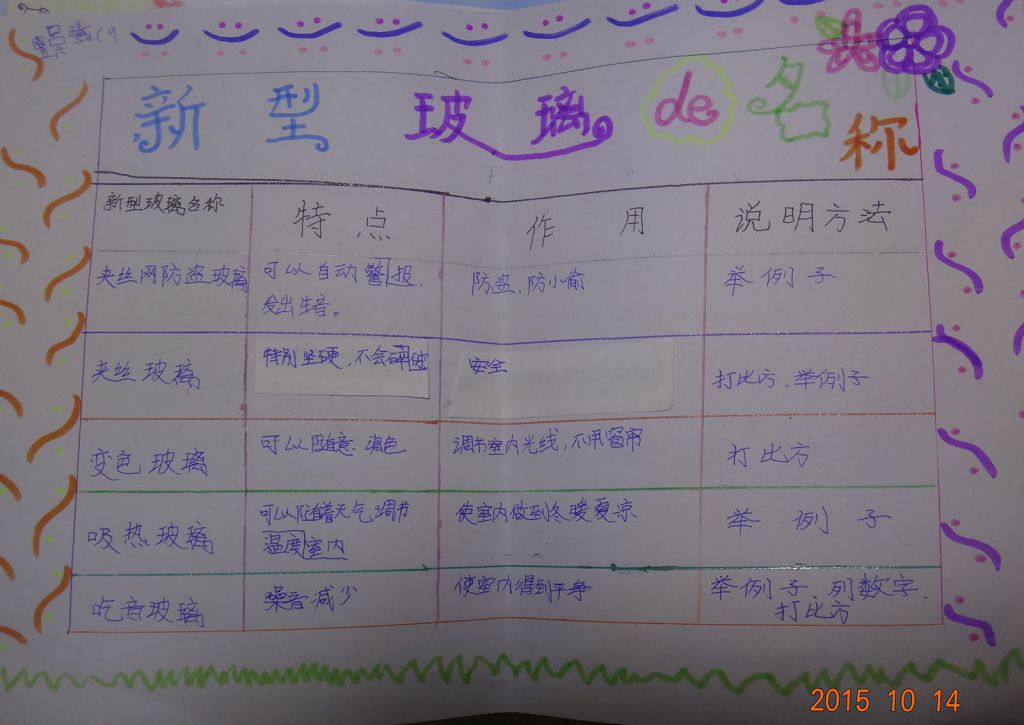 新型玻璃de名称
新型玻璃名称 特点 作用 说明方法
夹丝网防盗玻璃 可以自动警报, 防盗、防小偷 举例子
发出生音。
夹丝玻璃 特别坚硬,不会碎 安全 打比方、举例子
变色玻璃 可以随意 调色 调节室内光线,不用窗帘 打比方
吸热玻璃 可以随着天气调节 使室内做到冬暖夏凉 举例子
温度室内
吃音玻璃 噪音减少 使室内得到平静 举例子、列数字、
打比方
2015 10 14